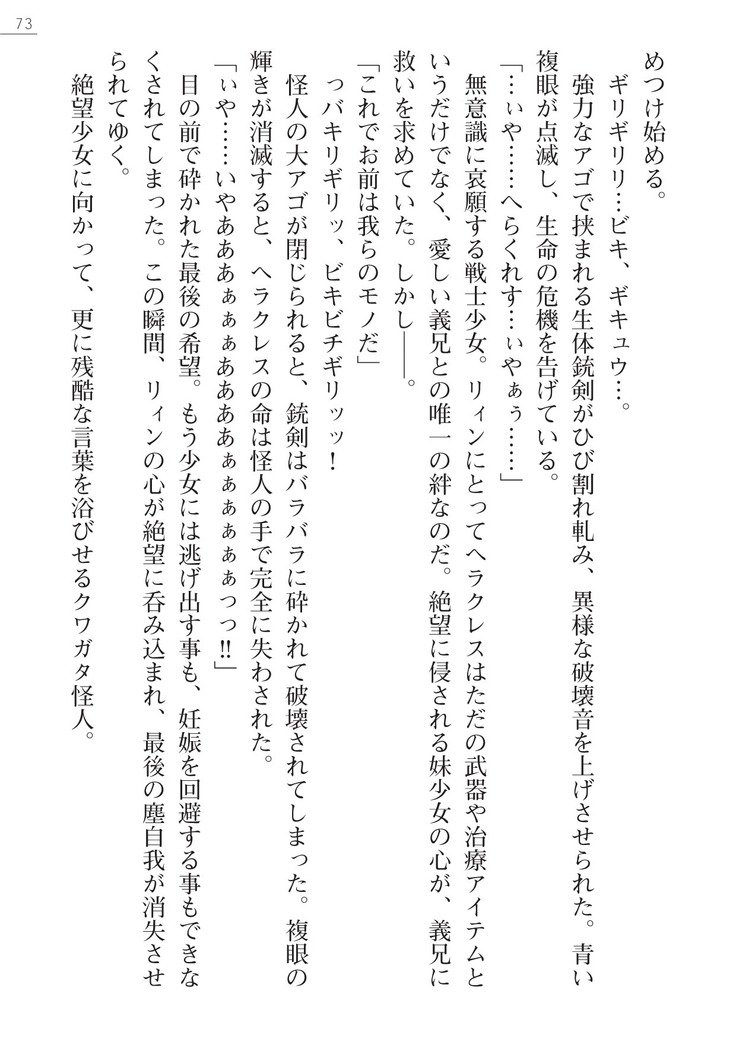 73
めつけ始める。
ギリギリリ…ビキ、ギキュウ…。
強力なアゴで挟まれる生体銃剣がひび割れ軋み、異様な破壊音を上げさせられた。青い
複眼が点滅し、生命の危機を告げている。
「…ぃや……へらくれす…ぃやぁぅ……」
無意識に哀願する戦士少女。リィンにとってヘラクレスはただの武器や治療アイテムと
いうだけでなく、愛しい義兄との唯一の絆なのだ。絶望に侵される妹少女の心が、義兄に
救いを求めていた。しかし――。
「これでお前は我らのモノだ」
っバキリギリッ、ビキビチギリッッ！
怪人の大アゴが閉じられると、銃剣はバラバラに砕かれて破壊されてしまった。複眼の
輝きが消滅すると、ヘラクレスの命は怪人の手で完全に失わされた。
「ぃや……いやあああぁぁぁああああぁぁぁぁぁぁっっ!!」
目の前で砕かれた最後の希望。もう少女には逃げ出す事も、妊娠を回避する事もできな
くされてしまった。この瞬間、リィンの心が絶望に呑み込まれ、最後の塵自我が消失させ
られてゆく。
絶望少女に向かって、更に残酷な言葉を浴びせるクワガタ怪人。